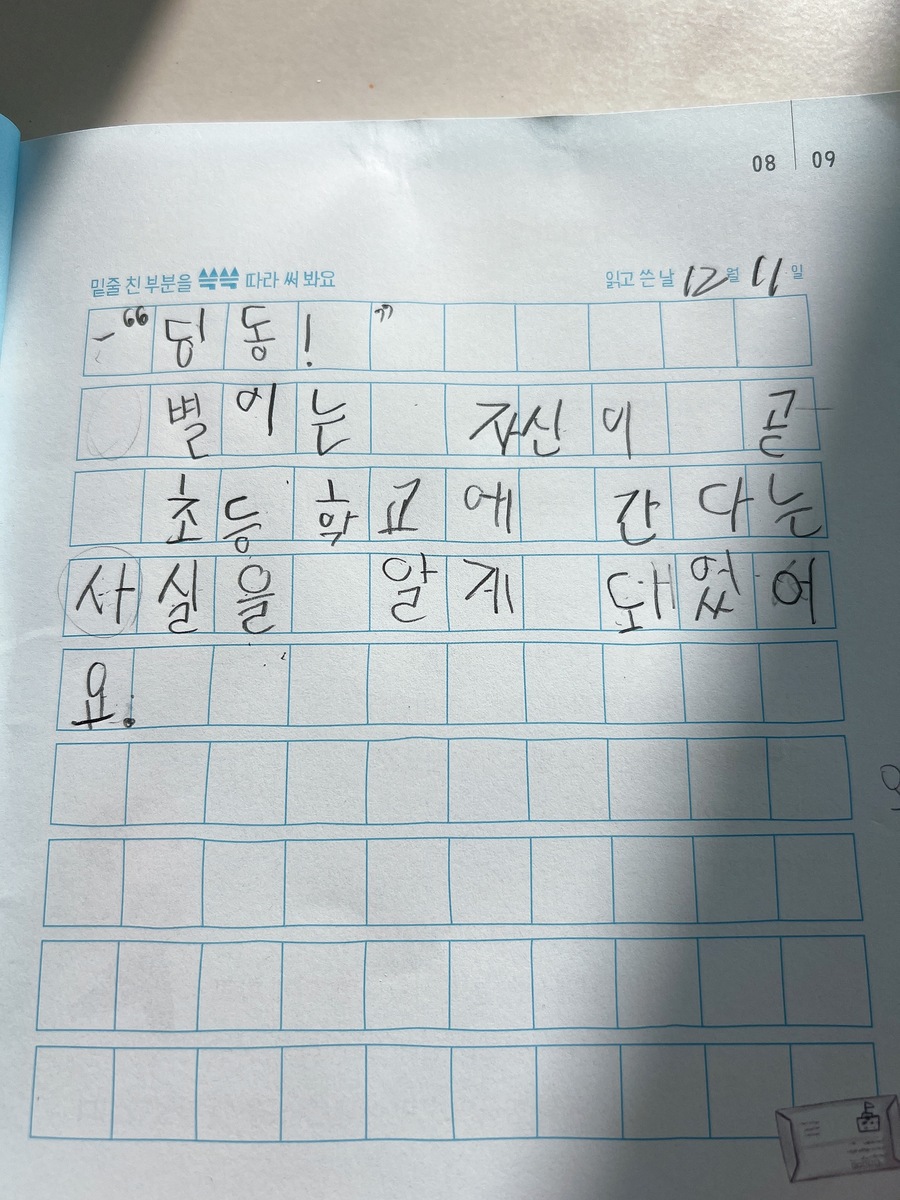 08 09
밑줄 친 부분을 쓱쓱 따라 써 봐요 읽고 쓴 날 12월 11일
"딩동! "
별이는 자신이 곧
초등학교에 간다는
사실을 알게 돼었어
요.